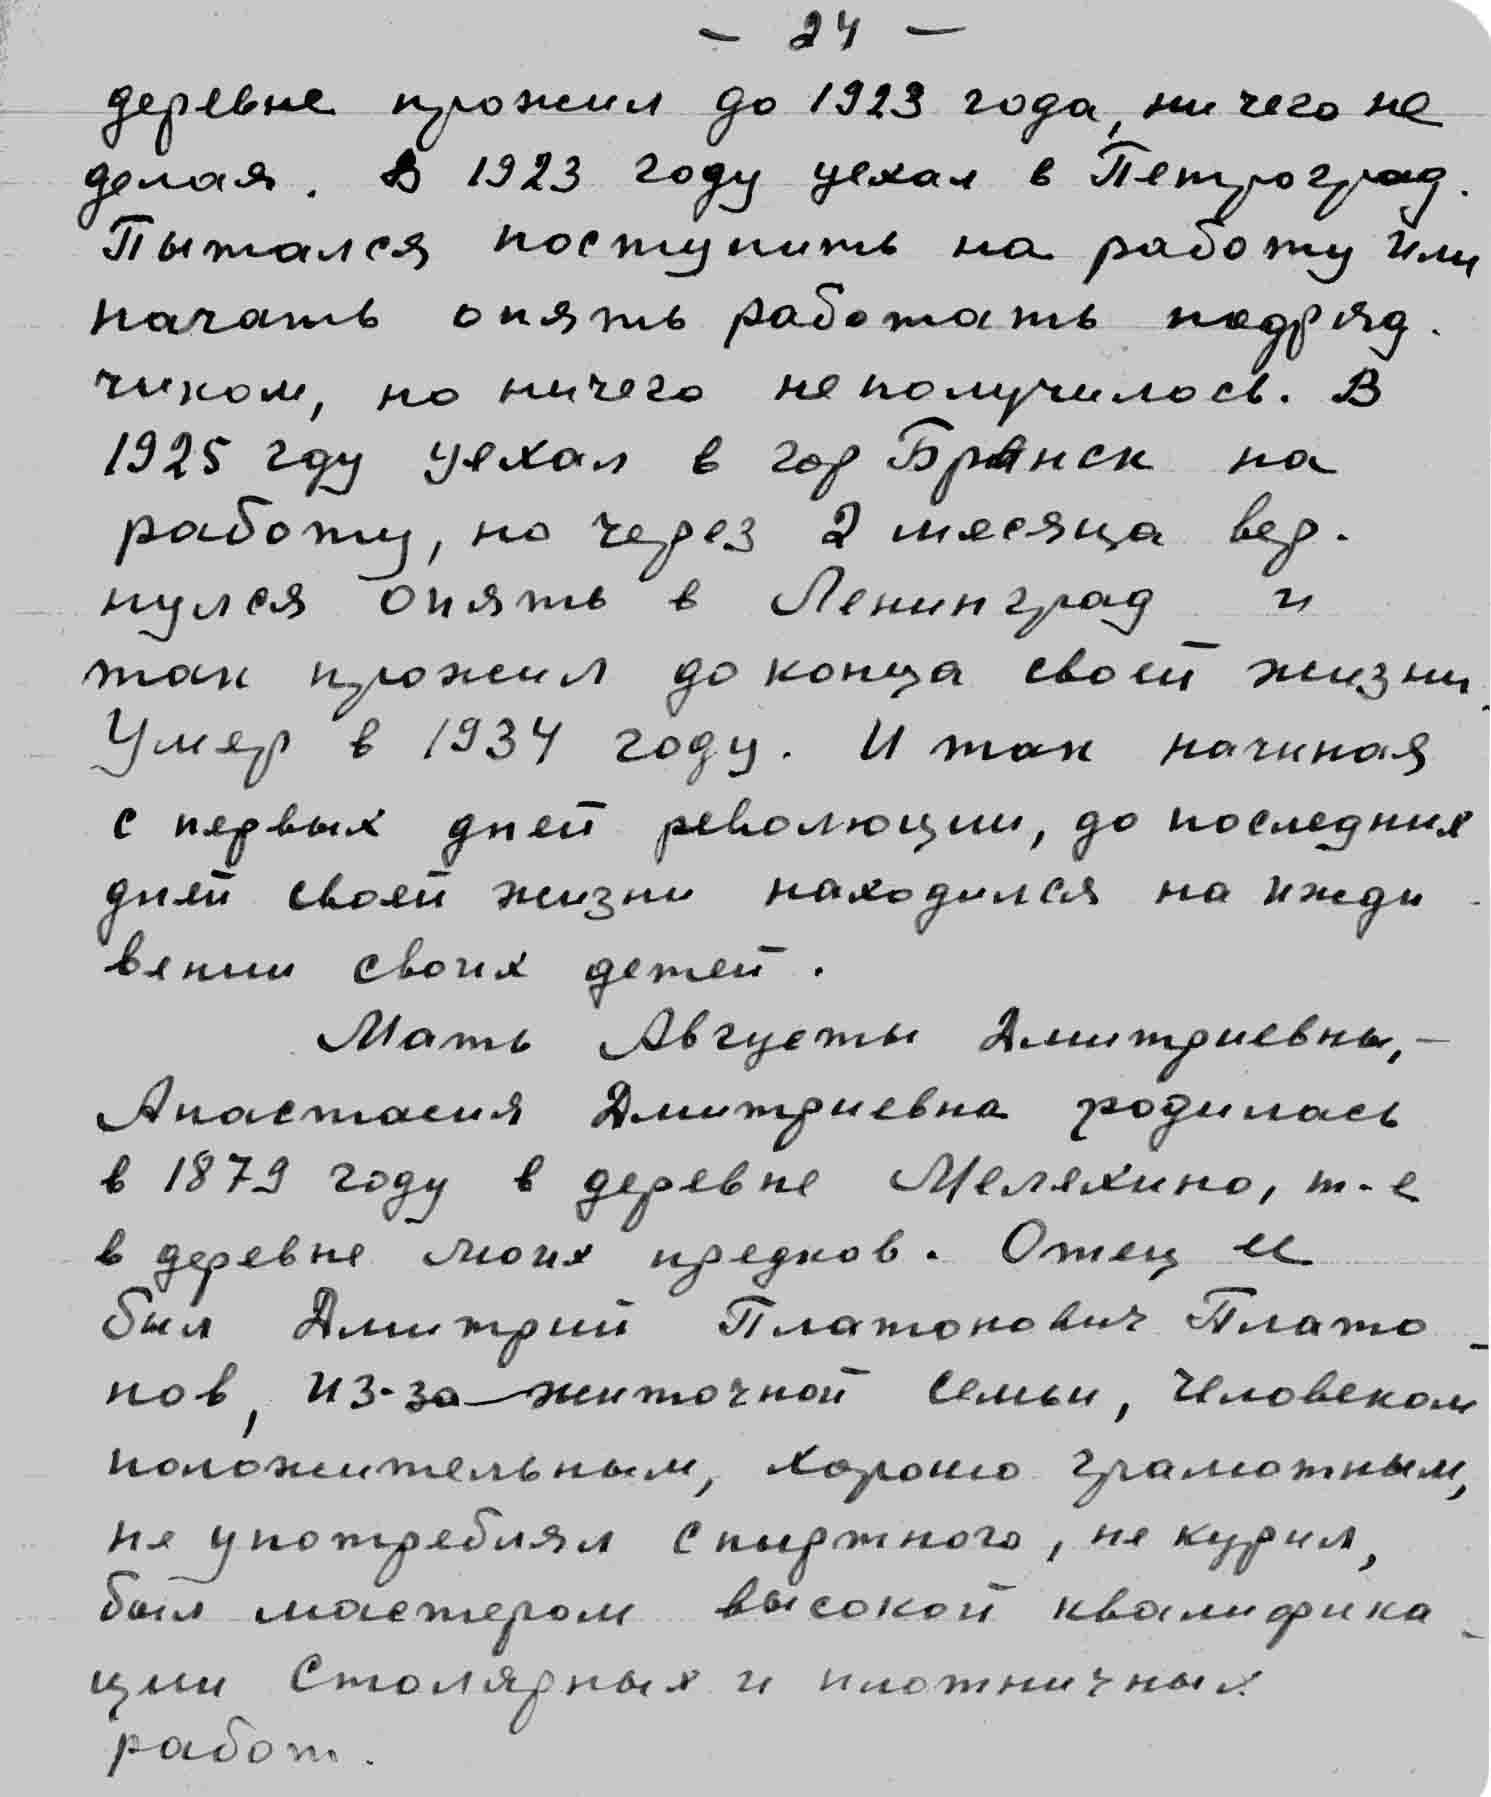 - 24 -
деревне прожил до 1923 года, ничего не
делая. В 1923 году уехал в Петроград.
Пытался поступить на работу или
начать опять работать подряд-
чиком, но ничего не получилось. В
1925 гду уехал в гор Брянск на
работу, но через 2 месяца вер-
нулся опять в Ленинград и
так прожил до конца своей жизни.
Умер в 1934 году. И так начиная
с первых дней революции, до последних
дней своей жизни находился на ижди-
вении своих детей.
Мать Августы Дмитриевны, -
Анастасия Дмитриевна родилась
в 1879 году в деревне Мелехино, т-е
в деревне моих предков. Отец ее
был Дмитрий Платонович Плато-
нов, из-за-житочной семьи, человеком
положительным, хорошо грамотным,
не употреблял спиртного, не курил,
был мастером высокой квалифика-
ции столярных и плотничных
работ.